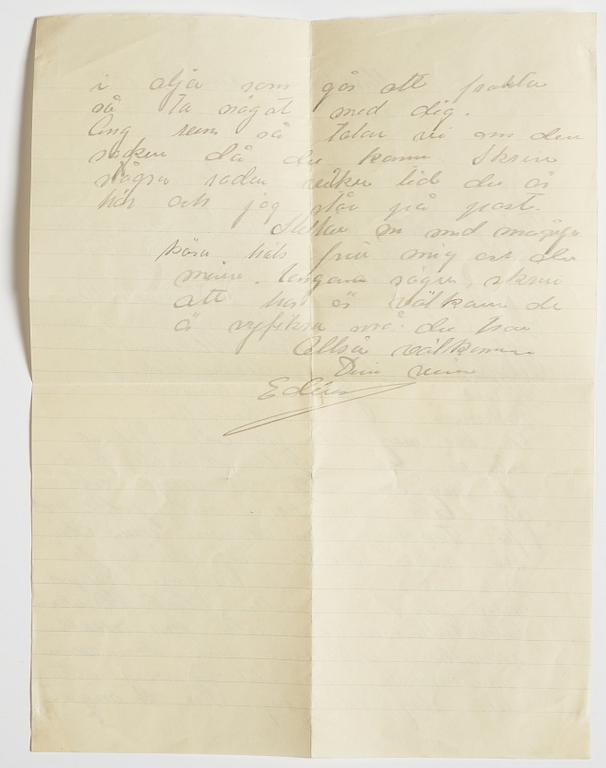 i olja som går att frakta
så ta något med dig.
Ang resan så talar vi om den
saken då du kom Skriv
några rader vilken tid du är
här och jag står på post.
Slutar nu med många
kära häls från mig och de
mina. tösarna säger, skriv
att han är välkomen de
är nyfikna må du tro
Alltså välkommen
Din vän